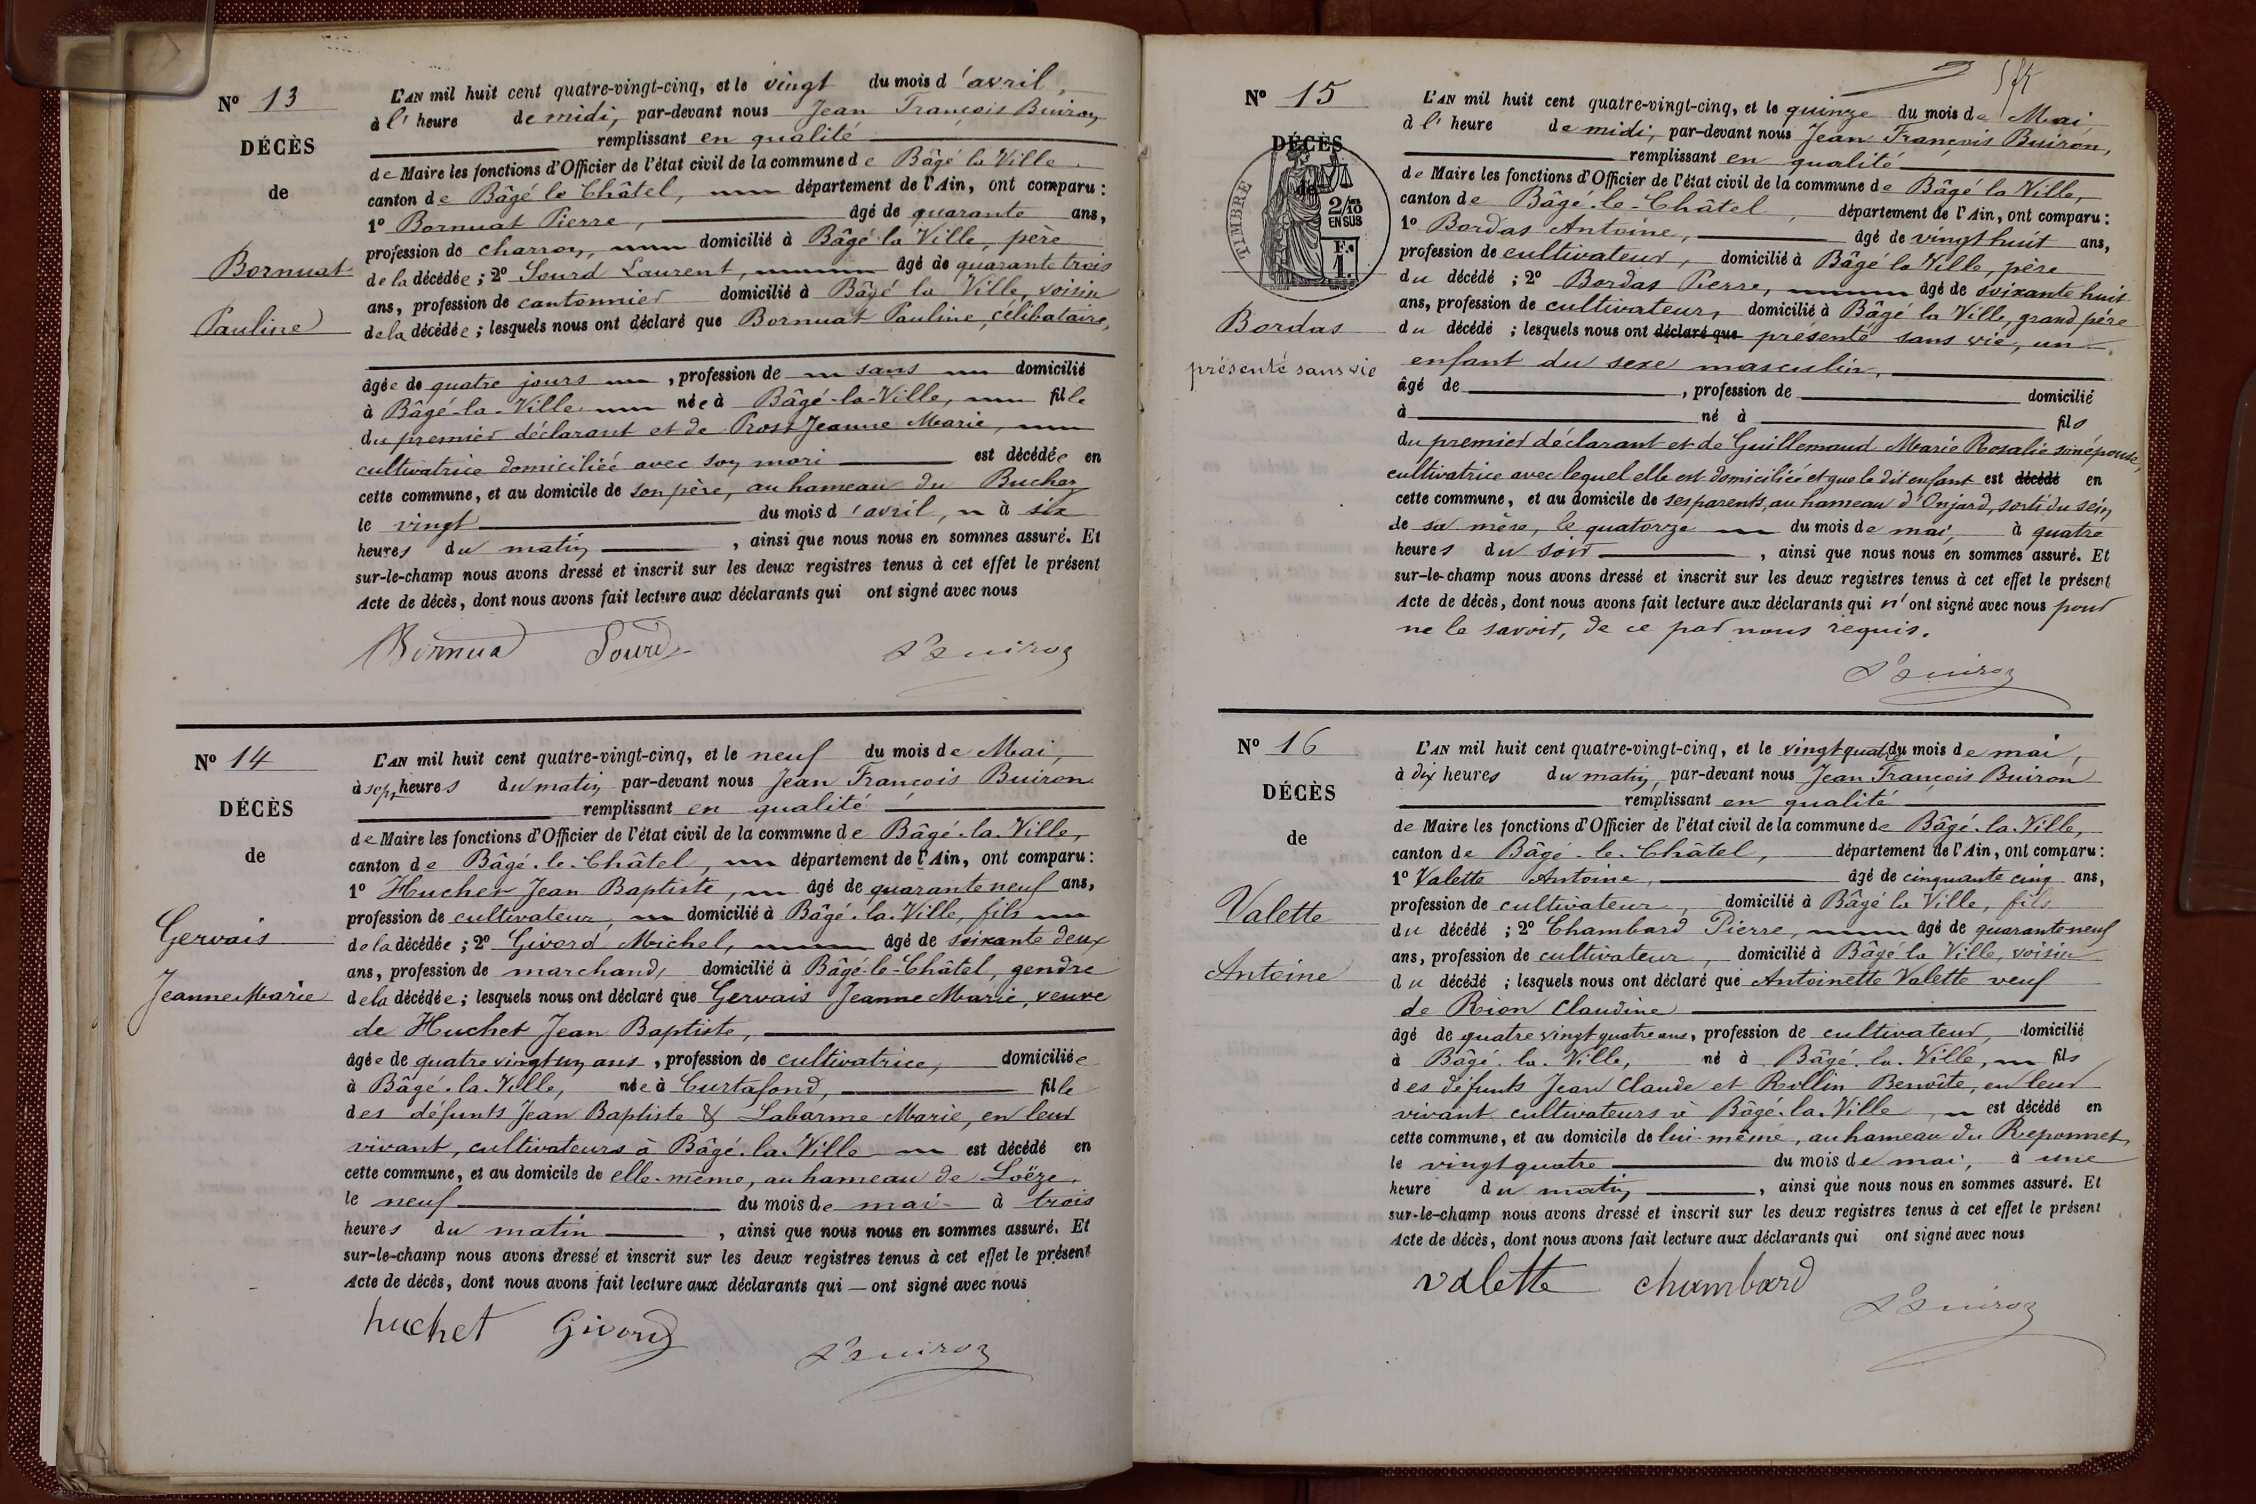 Nº 13
DÉCÈS
de
Bornuat
Pauline
L'AN mil huit cent quatre-vingt-cinq, et le vingt du mois d'avril,
à l'heure de midi, par-devant nous Jean François Buiron
remplissant en qualité
de Maire les fonctions d'Officier de l'état civil de la commune de Bâgé la Ville
canton de Bâgé le Châtel, département de l'Ain, ont comparu :
1º Bornuat Pierre, âgé de quarante ans,
profession de charron, domicilié à Bâgé la Ville, père
de la décédée ; 2º Sourd Laurent, âgé de quarante trois
ans, profession de cantonnier domicilié à Bâgé la Ville, voisin
de la décédée ; lesquels nous ont déclaré que Bornuat Pauline, célibataire,
âgée de quatre jours , profession de sans domicilié
à Bâgé-la-Ville née à Bâgé-la-Ville, fille
du premier déclarant et de Prost Jeanne Marie,
cultivatrice domiciliée avec son mari est décédée en
cette commune, et au domicile de son père, au hameau du Bucher
le vingt du mois d'avril, à six
heures du matin , ainsi que nous nous en sommes assuré. Et
sur-le-champ nous avons dressé et inscrit sur les deux registres tenus à cet effet le présent
Acte de décès, dont nous avons fait lecture aux déclarants qui ont signé avec nous
Bornua Sourd Buiron
Nº 14
DÉCÈS
de
Gervais
Jeanne Marie
L'AN mil huit cent quatre-vingt-cinq, et le neuf du mois de Mai,
à sept heures du matin par-devant nous Jean François Buiron
remplissant en qualité
de Maire les fonctions d'Officier de l'état civil de la commune de Bâgé-la-Ville,
canton de Bâgé-le-Châtel, département de l'Ain, ont comparu :
1º Huchet Jean Baptiste, âgé de quarante neuf ans,
profession de cultivateur, domicilié à Bâgé-la-Ville, fils
de la décédée ; 2º Givord Michel, âgé de soixante deux
ans, profession de marchand, domicilié à Bâgé-le-Châtel, gendre
de la décédée ; lesquels nous ont déclaré que Gervais Jeanne Marie, veuve
de Huchet Jean Baptiste,
âgée de quatre vingt un ans , profession de cultivatrice, domiciliée
à Bâgé-la-Ville, née à Curtafond, fille
des défunts Jean Baptiste & Labarme Marie, en leur
vivant, cultivateurs à Bâgé-la-Ville est décédé en
cette commune, et au domicile de elle-même, au hameau de Loëze
le neuf du mois de mai à trois
heures du matin , ainsi que nous nous en sommes assuré. Et
sur-le-champ nous avons dressé et inscrit sur les deux registres tenus à cet effet le présent
Acte de décès, dont nous avons fait lecture aux déclarants qui — ont signé avec nous
huchet Givord Buiron
Nº 15
DÉCÈS
de
TIMBRE
2/10
EN SUS
F.
1.
Bordas
présenté sans vie
L'AN mil huit cent quatre-vingt-cinq, et le quinze du mois de Mai,
à l'heure de midi, par-devant nous Jean François Buiron,
remplissant en qualité
de Maire les fonctions d'Officier de l'état civil de la commune de Bâgé la Ville,
canton de Bâgé-le-Châtel, département de l'Ain, ont comparu :
1º Bordas Antoine, âgé de vingt huit ans,
profession de cultivateur, domicilié à Bâgé la Ville, père
du décédé ; 2º Bordas Pierre, âgé de soixante huit
ans, profession de cultivateur, domicilié à Bâgé la Ville, grand père
du décédé ; lesquels nous ont déclaré que présenté sans vie, un
enfant du sexe masculin,
âgé de , profession de domicilié
à né à fils
du premier déclarant et de Guillemaud Marie Rosalie son épouse,
cultivatrice avec lequel elle est domiciliée et que le dit enfant est décédé en
cette commune, et au domicile de ses parents, au hameau d'Onjard, sorti du sein
de sa mère, le quatorze du mois de mai, à quatre
heures du soir , ainsi que nous nous en sommes assuré. Et
sur-le-champ nous avons dressé et inscrit sur les deux registres tenus à cet effet le présent
Acte de décès, dont nous avons fait lecture aux déclarants qui n'ont signé avec nous pour
ne le savoir, de ce par nous requis.
Buiron
Nº 16
DÉCÈS
de
Valette
Antoine
L'AN mil huit cent quatre-vingt-cinq, et le vingt quatre du mois de mai,
à dix heures du matin, par-devant nous Jean François Buiron
remplissant en qualité
de Maire les fonctions d'Officier de l'état civil de la commune de Bâgé-la-Ville,
canton de Bâgé-le-Châtel, département de l'Ain, ont comparu :
1º Valette Antoine, âgé de cinquante cinq ans,
profession de cultivateur, domicilié à Bâgé la Ville, fils
du décédé ; 2º Chambard Pierre, âgé de quarante neuf
ans, profession de cultivateur, domicilié à Bâgé la Ville, voisin
du décédé ; lesquels nous ont déclaré que Antoinette Valette veuf
de Rion Claudine
âgé de quatre vingt quatre ans, profession de cultivateur, domicilié
à Bâgé-la-Ville, né à Bâgé-la-Ville, fils
des défunts Jean Claude et Rollin Benoîte, en leur
vivant cultivateurs à Bâgé-la-Ville, est décédé en
cette commune, et au domicile de lui-même, au hameau du Reponnet,
le vingt quatre du mois de mai, à une
heure du matin , ainsi que nous nous en sommes assuré. Et
sur-le-champ nous avons dressé et inscrit sur les deux registres tenus à cet effet le présent
Acte de décès, dont nous avons fait lecture aux déclarants qui ont signé avec nous
valette chambard Buiron